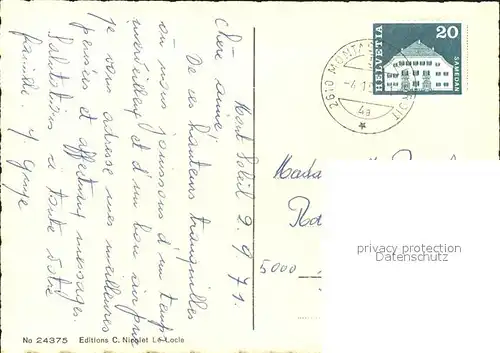 Mont Soleil 2.9.71.
Chère amie!
De ces hauteurs tranquilles
où nous jouissons d'un temps
merveilleux et d'un bon air pur
je vous adresse mes meilleures
pensées et affectueux messages.
Salutations à toute votre
famille. Y.
HELVETIA
20
SAMEDAN
2610 MONT
4a
5000
privacy protection
Datenschutz
No 24375 Editions C. Nicolet Le Locle